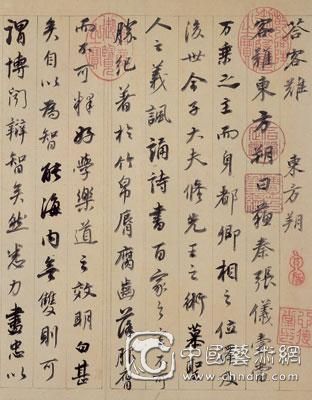 答客難 東方朔
客難東方朔曰蘇秦張儀壹當
萬乘之主而身都卿相之位澤及
後世今子大夫修先王之術慕聖
人之義諷誦詩書百家之言不可
勝紀著於竹帛脣腐齒落服膺
而不可釋好學樂道之效明白甚
矣自以為智能海內無雙則可
謂博聞辯智矣然悉力盡忠以
中國藝術網
www.chnart.com